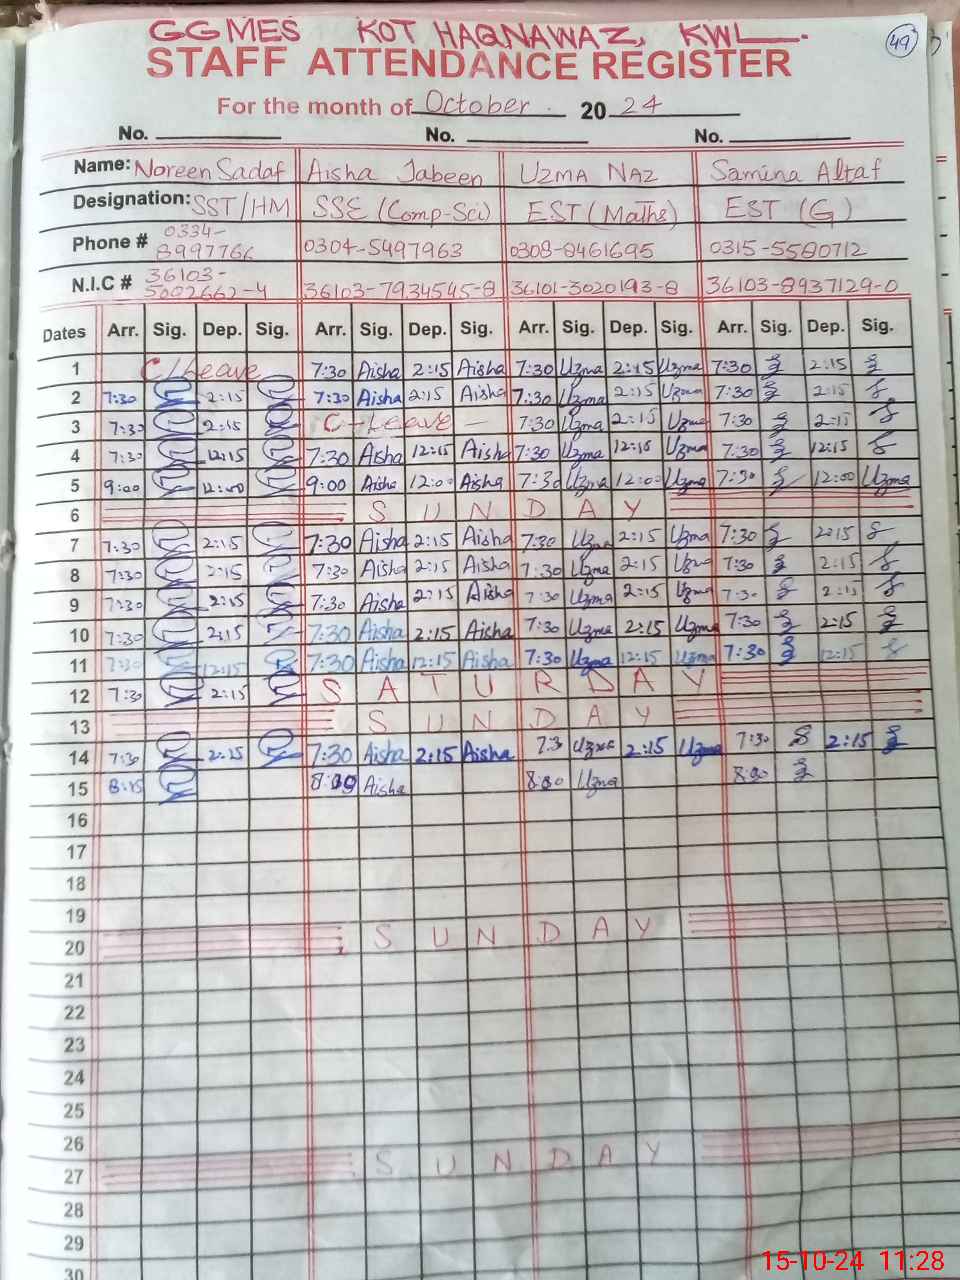 GGMES KOT HAQNAWAZ, KWL.
49
STAFF ATTENDANCE REGISTER
For the month of October. 20 24
No. No. No.
Name: Noreen Sadaf Aisha Jabeen Uzma Naz Samina Altaf
Designation: SST/HM SSE (Comp-Sci) EST (Maths) EST (G)
Phone # 0334-8997766 0304-5497963 0308-8461695 0315-5580712
N.I.C # 36103-5002662-4 36103-7934545-8 36101-3020193-8 36103-8937129-0
Dates Arr. Sig. Dep. Sig. Arr. Sig. Dep. Sig. Arr. Sig. Dep. Sig. Arr. Sig. Dep. Sig.
1 C/Leave 7:30 Aisha 2:15 Aisha 7:30 Uzma 2:15 Uzma 7:30 2:15
2 7:30 2:15 7:30 Aisha 2:15 Aisha 7:30 Uzma 2:15 Uzma 7:30 2:15
3 7:30 2:15 C-Leave - 7:30 Uzma 2:15 Uzma 7:30 2:15
4 7:30 12:15 7:30 Aisha 12:15 Aisha 7:30 Uzma 12:15 Uzma 7:30 12:15
5 9:00 12:00 9:00 Aisha 12:00 Aisha 7:30 Uzma 12:00 Uzma 7:30 12:00 Uzma
6 SUNDAY
7 7:30 2:15 7:30 Aisha 2:15 Aisha 7:30 Uzma 2:15 Uzma 7:30 2:15
8 7:30 2:15 7:30 Aisha 2:15 Aisha 7:30 Uzma 2:15 Uzma 7:30 2:15
9 7:30 2:15 7:30 Aisha 2:15 Aisha 7:30 Uzma 2:15 Uzma 7:30 2:15
10 7:30 2:15 7:30 Aisha 2:15 Aisha 7:30 Uzma 2:15 Uzma 7:30 2:15
11 7:30 12:15 7:30 Aisha 12:15 Aisha 7:30 Uzma 12:15 Uzma 7:30 12:15
12 7:30 2:15 SATURDAY
13 SUNDAY
14 7:30 2:15 7:30 Aisha 2:15 Aisha 7:3 Uzma 2:15 Uzma 7:30 2:15
15 8:15 Aisha 8:00 Uzma
16
17
18
19
20 SUNDAY
21
22
23
24
25
26
27 SUNDAY
28
29
30
15-10-24 11:28